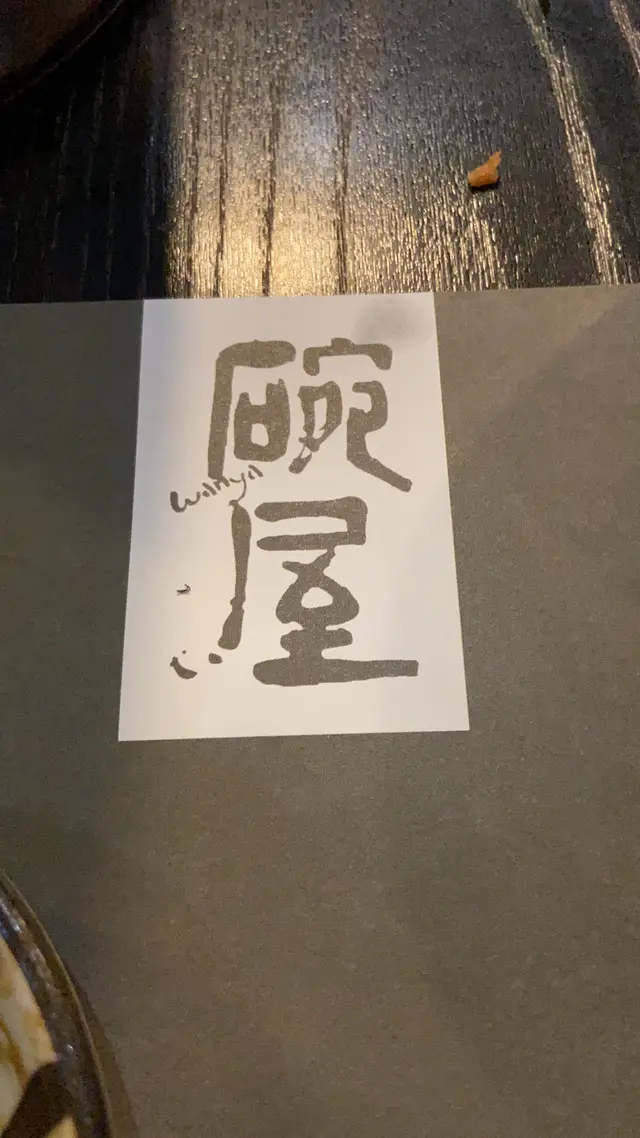 碗
wanya
屋